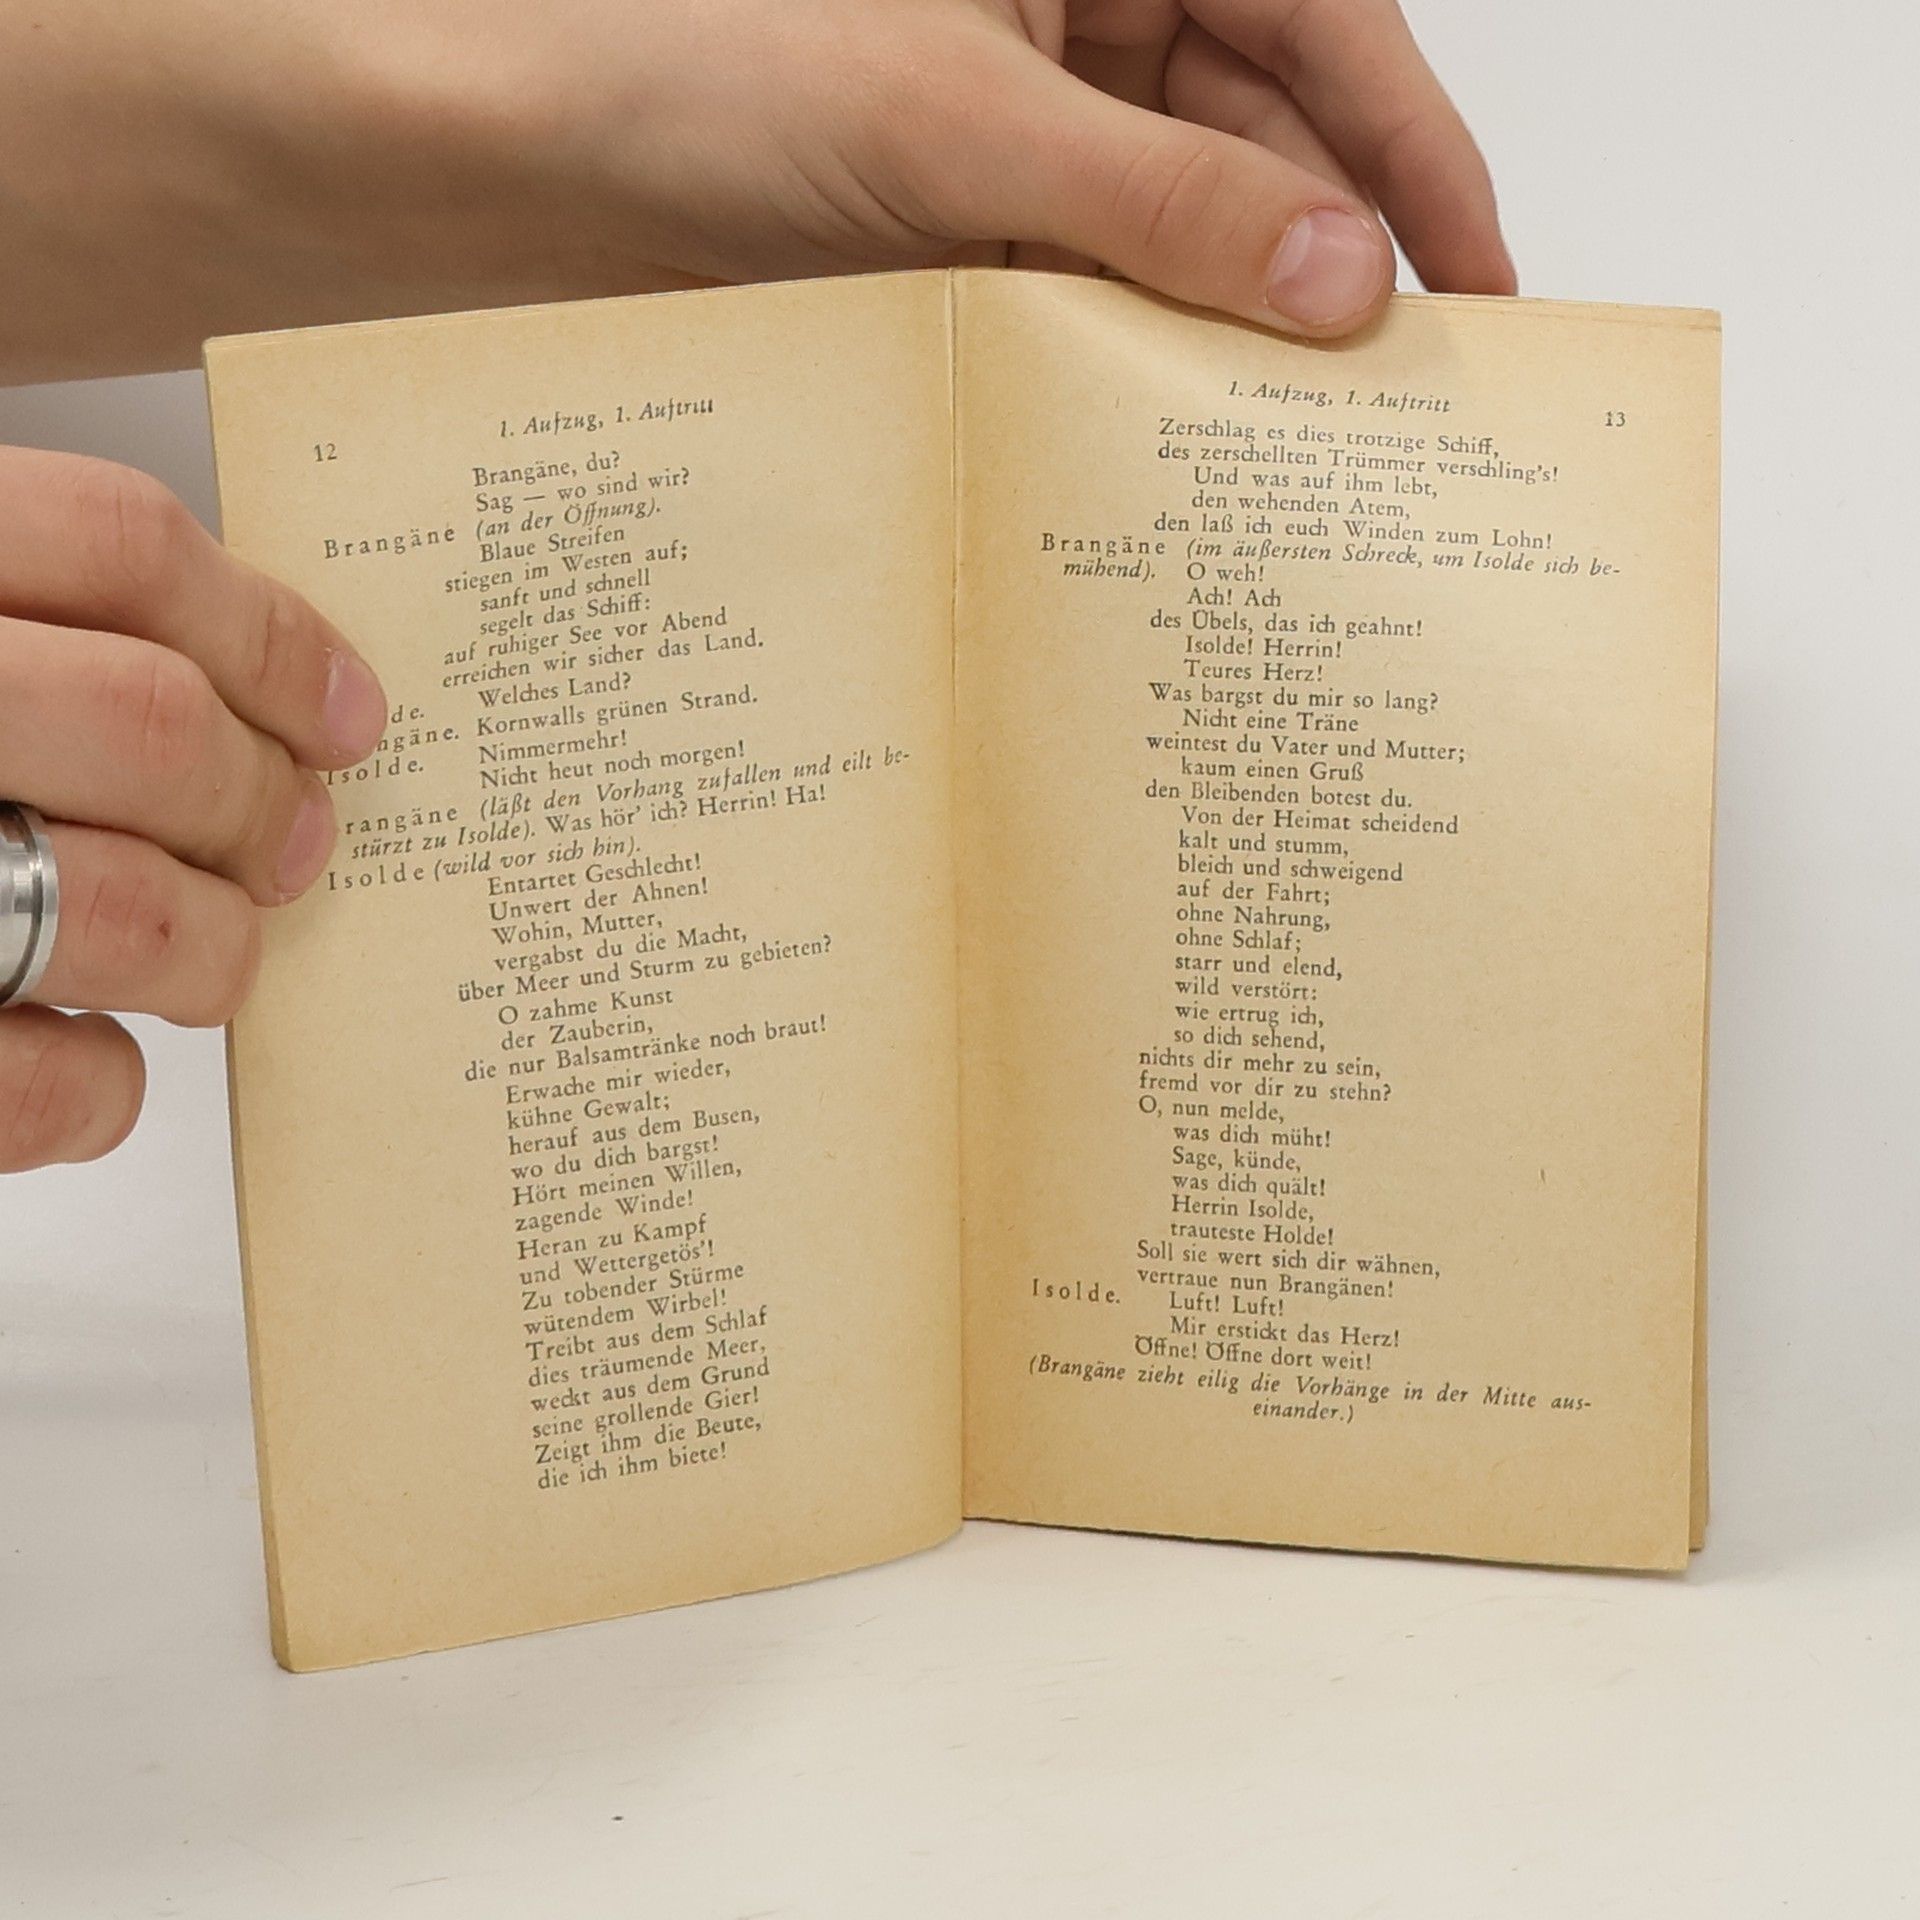 12
1. Aufzug, 1. Auftritt
Brangäne, du?
Sag — wo sind wir?
Brangäne (an der Öffnung).
Blaue Streifen
stiegen im Westen auf;
sanft und schnell
segelt das Schiff:
auf ruhiger See vor Abend
erreichen wir sicher das Land.
de. Welches Land?
ngäne. Kornwalls grünen Strand.
Isolde. Nimmermehr!
Nicht heut noch morgen!
rangäne (läßt den Vorhang zufallen und eilt be-
stürzt zu Isolde). Was hör' ich? Herrin! Ha!
Isolde (wild vor sich hin).
Entartet Geschlecht!
Unwert der Ahnen!
Wohin, Mutter,
vergabst du die Macht,
über Meer und Sturm zu gebieten?
O zahme Kunst
der Zauberin,
die nur Balsamtränke noch braut!
Erwache mir wieder,
kühne Gewalt;
herauf aus dem Busen,
wo du dich bargst!
Hört meinen Willen,
zagende Winde!
Heran zu Kampf
und Wettergetös'!
Zu tobender Stürme
wütendem Wirbel!
Treibt aus dem Schlaf
dies träumende Meer,
weckt aus dem Grund
seine grollende Gier!
Zeigt ihm die Beute,
die ich ihm biete!
1. Aufzug, 1. Auftritt
13
Zerschlag es dies trotzige Schiff,
des zerschellten Trümmer verschling's!
Und was auf ihm lebt,
den wehenden Atem,
den laß ich euch Winden zum Lohn!
Brangäne (im äußersten Schreck, um Isolde sich be-
mühend). O weh!
Ach! Ach
des Übels, das ich geahnt!
Isolde! Herrin!
Teures Herz!
Was bargst du mir so lang?
Nicht eine Träne
weintest du Vater und Mutter;
kaum einen Gruß
den Bleibenden botest du.
Von der Heimat scheidend
kalt und stumm,
bleich und schweigend
auf der Fahrt;
ohne Nahrung,
ohne Schlaf;
starr und elend,
wild verstört:
wie ertrug ich,
so dich sehend,
nichts dir mehr zu sein,
fremd vor dir zu stehn?
O, nun melde,
was dich müht!
Sage, künde,
was dich quält!
Herrin Isolde,
trauteste Holde!
Soll sie wert sich dir wähnen,
vertraue nun Brangänen!
Isolde. Luft! Luft!
Mir erstickt das Herz!
Öffne! Öffne dort weit!
(Brangäne zieht eilig die Vorhänge in der Mitte aus-
einander.)